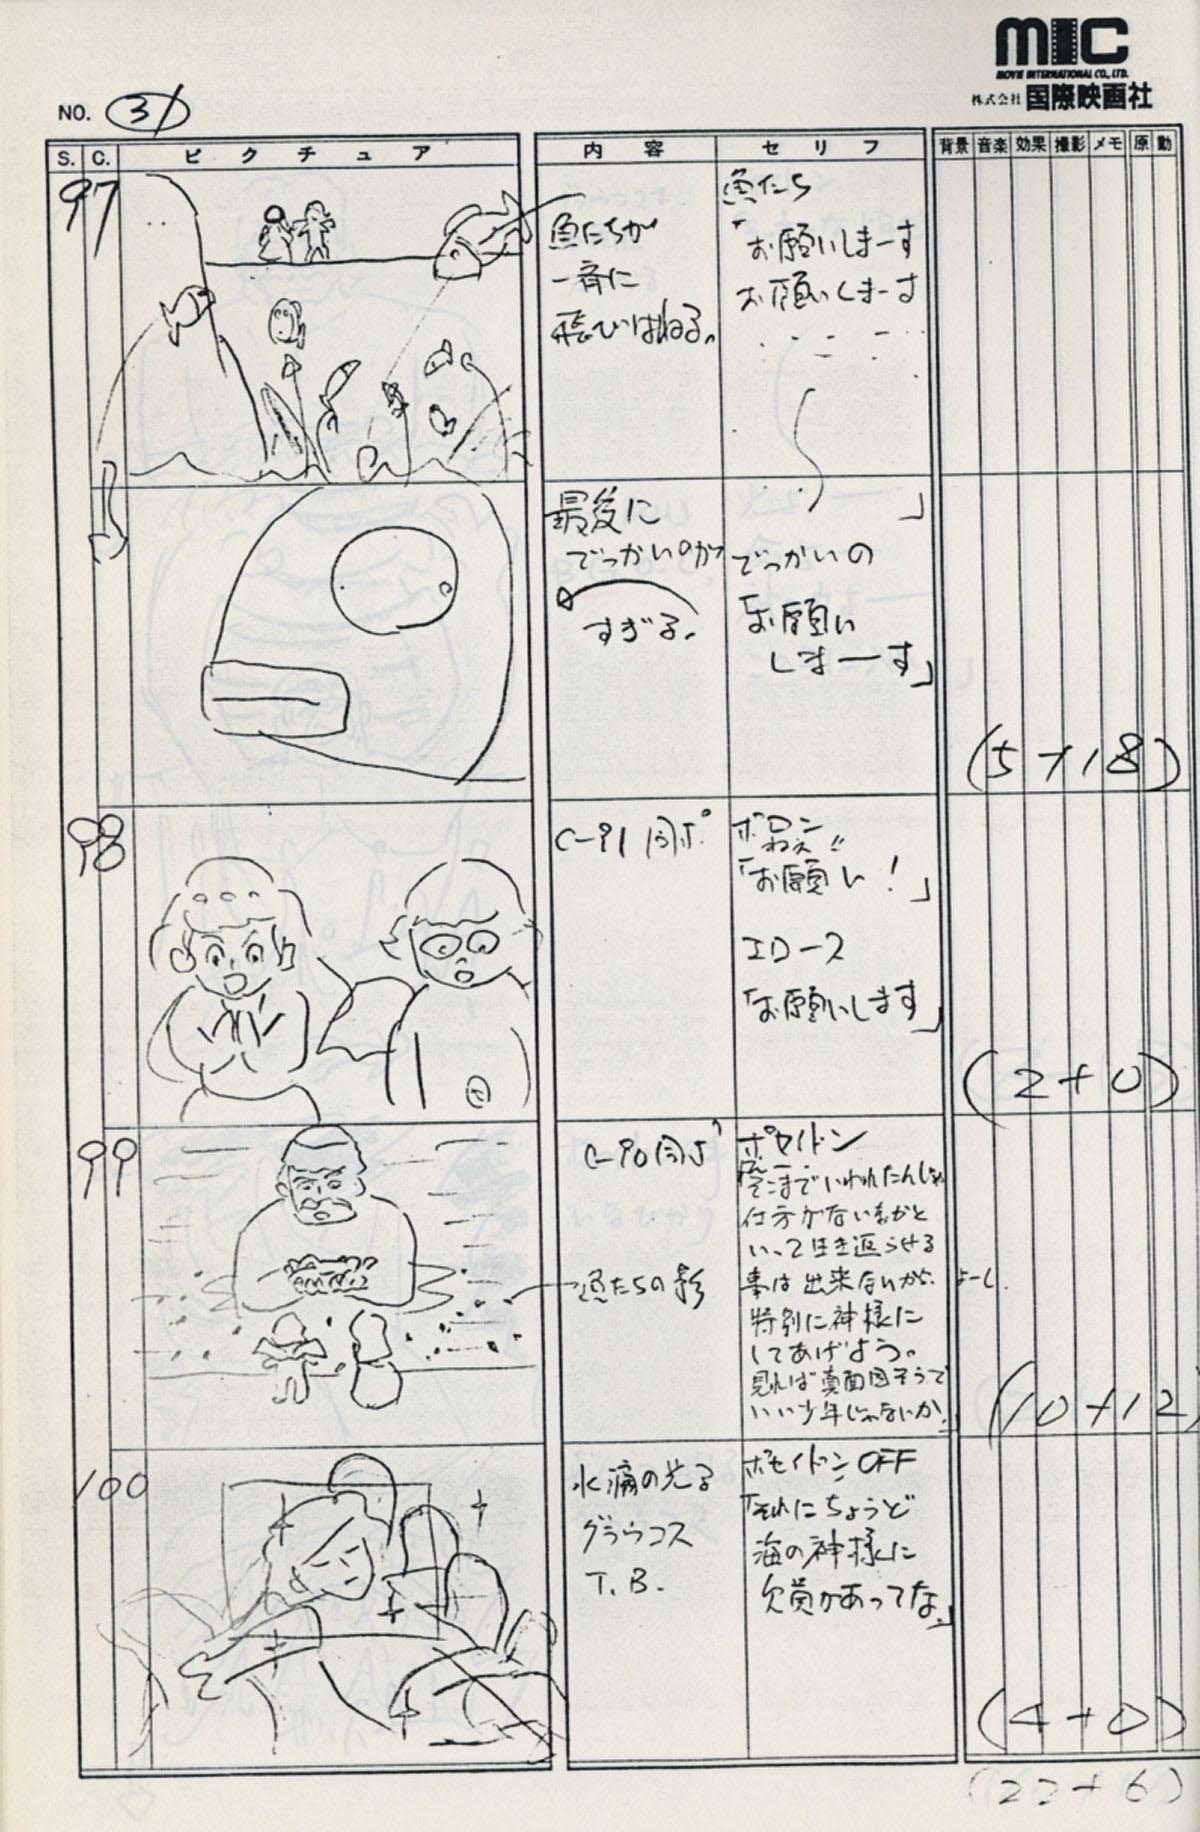 mic
MOVIE INTERNATIONAL CO., LTD.
株式会社 国際映画社
NO. 31
S. C. ピクチュア 内容 セリフ 背景 音楽 効果 撮影 メモ 原 動
97
魚たちが
一斉に
飛びはねる。
魚たち
「お願いしまーす
お願いしまーす
」
最後に
でっかいのが
すぎる。
でっかいの
「お願い
しまーす」
(5+18)
98
C-91 同ポ
ポロン
ねえ!!
「お願い!」
エロース
「お願いします」
(2+0)
99
C-90 同ポ
魚たちの影
ポセイドン
そこまでいわれたんじゃ
仕方がない
いって生き返らせる
事は出来ないから、よーし
特別に神様に
してあげよう。
見れば真面目そうで
いい少年じゃないか」
(10+12)
100
水滴の光る
グラウコス
T.B.
ポセイドン OFF
「それにちょうど
海の神様に
欠員があってな」
(4+0)
(22+6)